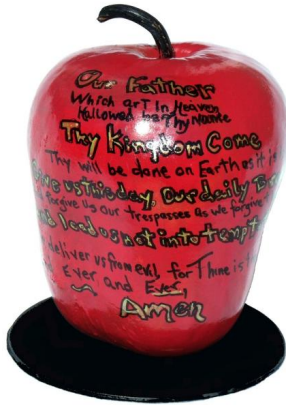 Our Father
Which art In Heaven
Hallowed be Thy Name
Thy Kingdom Come
Thy will be done on Earth as it is
Give us this day, Our daily Bre
forgive us our trespasses as we forgive
and lead us not into tempt
deliver us from evil, for Thine is
Ever and Ever,
Amen